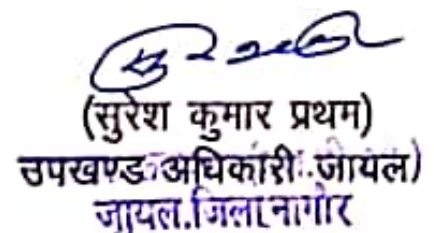 (सुरेश कुमार प्रथम)
उपखण्ड अधिकारी जायल)
जायल.जिला नागौर